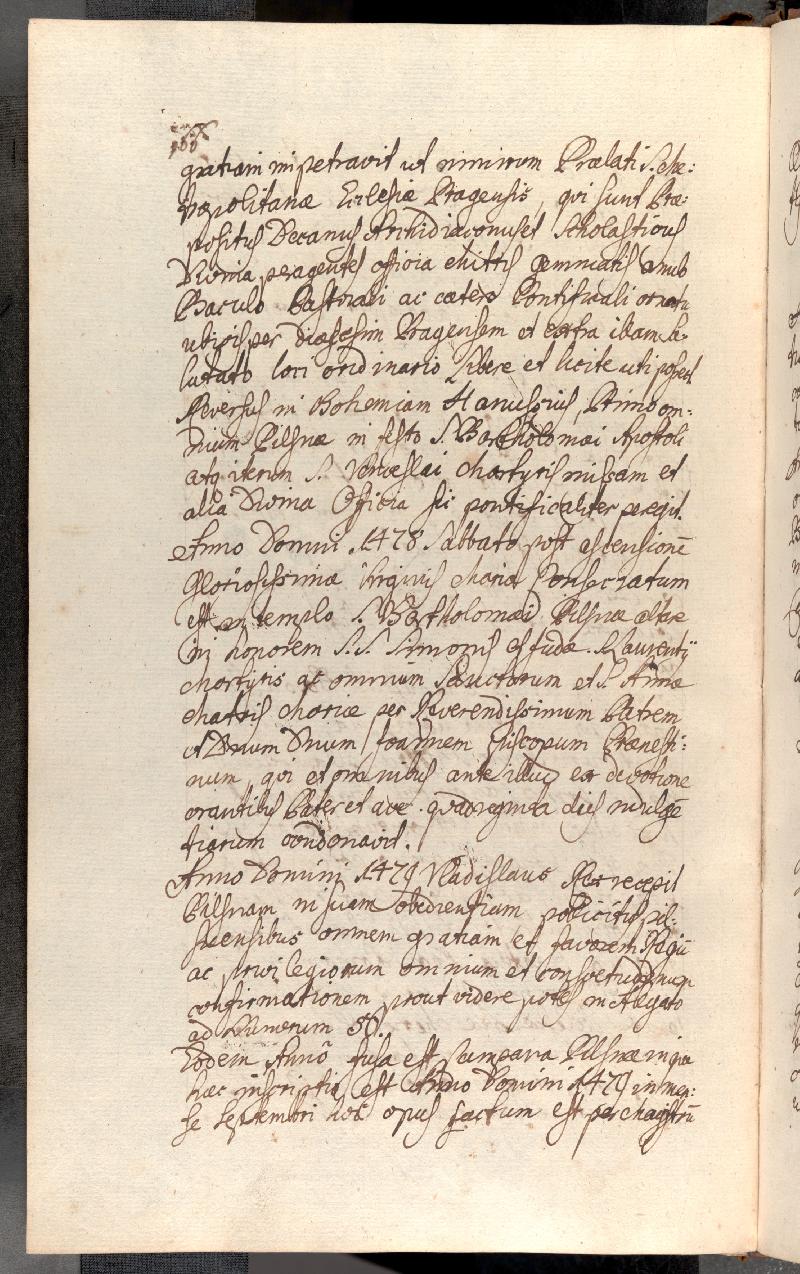 gratiam impetravit ut nimirum Prælati S. Me:
tropolitanæ Ecclesiæ Pragensis, qui sunt Præ:
positus Decanus Archidiaconus et Scholasticus
Divina peragentes officia Mittris gemmatis
Baculo Pastorali ac cæter Pontificali ornatu
ubivis per diæcesim Pragensem et extra illam sa-
lutato loci ordinario libere et licite uti possent
Reversus in Bohemiam Hanussius, Primo om:
nium Pilsnæ in festo S. Bartholomæi Apostoli
atq iterum S. Venceslai Martyris missam et
alia Divina Officia sic pontificaliter peregit.
Anno Domini .1478 Sabbato post ascensionē
Gloriosissimæ Virginis Mariæ Consecratum
est in templo S. Bartholomæi Pilsnæ altare
in honorem S.S. Simonis et Judæ S. Laurentij
Martyris ac omnium Sanctorum et S. Annæ
Matris Mariæ per Reverendissimum Patrem
et Dnum Dnum Joannem Episcopum Prænesti:
num, qui et omnibus ante illud ex devotione
orantibus Pater et ave quadraginta dies indulgē
tiarum condonavit.
Anno Domini .1479 Vladislaus Rex recepit
Pilsnam in suam obedientiam pollicitus Pil:
snensibus omnem gratiam et favorem Regiū
ac privilegiorum omnium et consvetudinum
confirmationem prout videre potes in Allegato
ad Numerum 50.
Eodem Anno fusa est Campana Pilsnæ in qua
hæc inscriptio est Anno Domini 1479 in men:
se Septembri hoc opus factum est per Magistrū